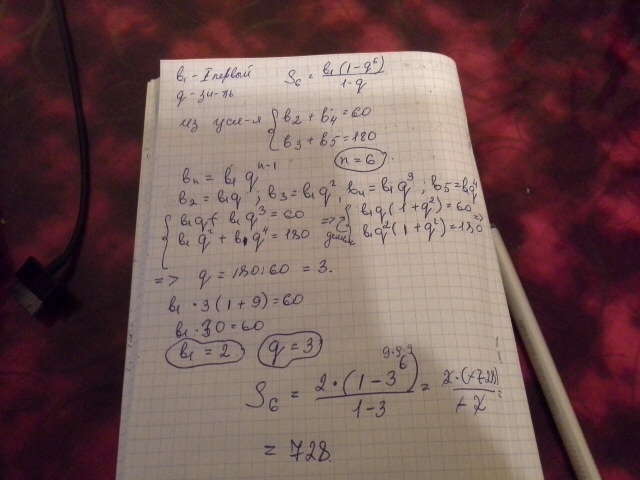 b₁ - I первый
q - зн-ль
S₆ = b₁(1-q⁶)/1-q
из усл-я { b₂ + b₄ = 60
b₃ + b₅ = 180
n = 6.
bₙ = b₁ qⁿ⁻¹
b₂ = b₁q ; b₃ = b₁q², b₄ = b₁q³ ; b₅ = b₁q⁴
{ b₁q + b₁q³ = 60
b₁q² + b₁q⁴ = 180
=> делим { b₁q(1+q²) = 60
b₁q²(1+q²) = 180 =>
=> q = 180:60 = 3.
b₁ · 3(1+9) = 60
b₁ · 30 = 60
b₁ = 2 q = 3
9·9·9
S₆ = 2·(1-3⁶)/1-3 = 2·(-728)/-2 =
= 728.